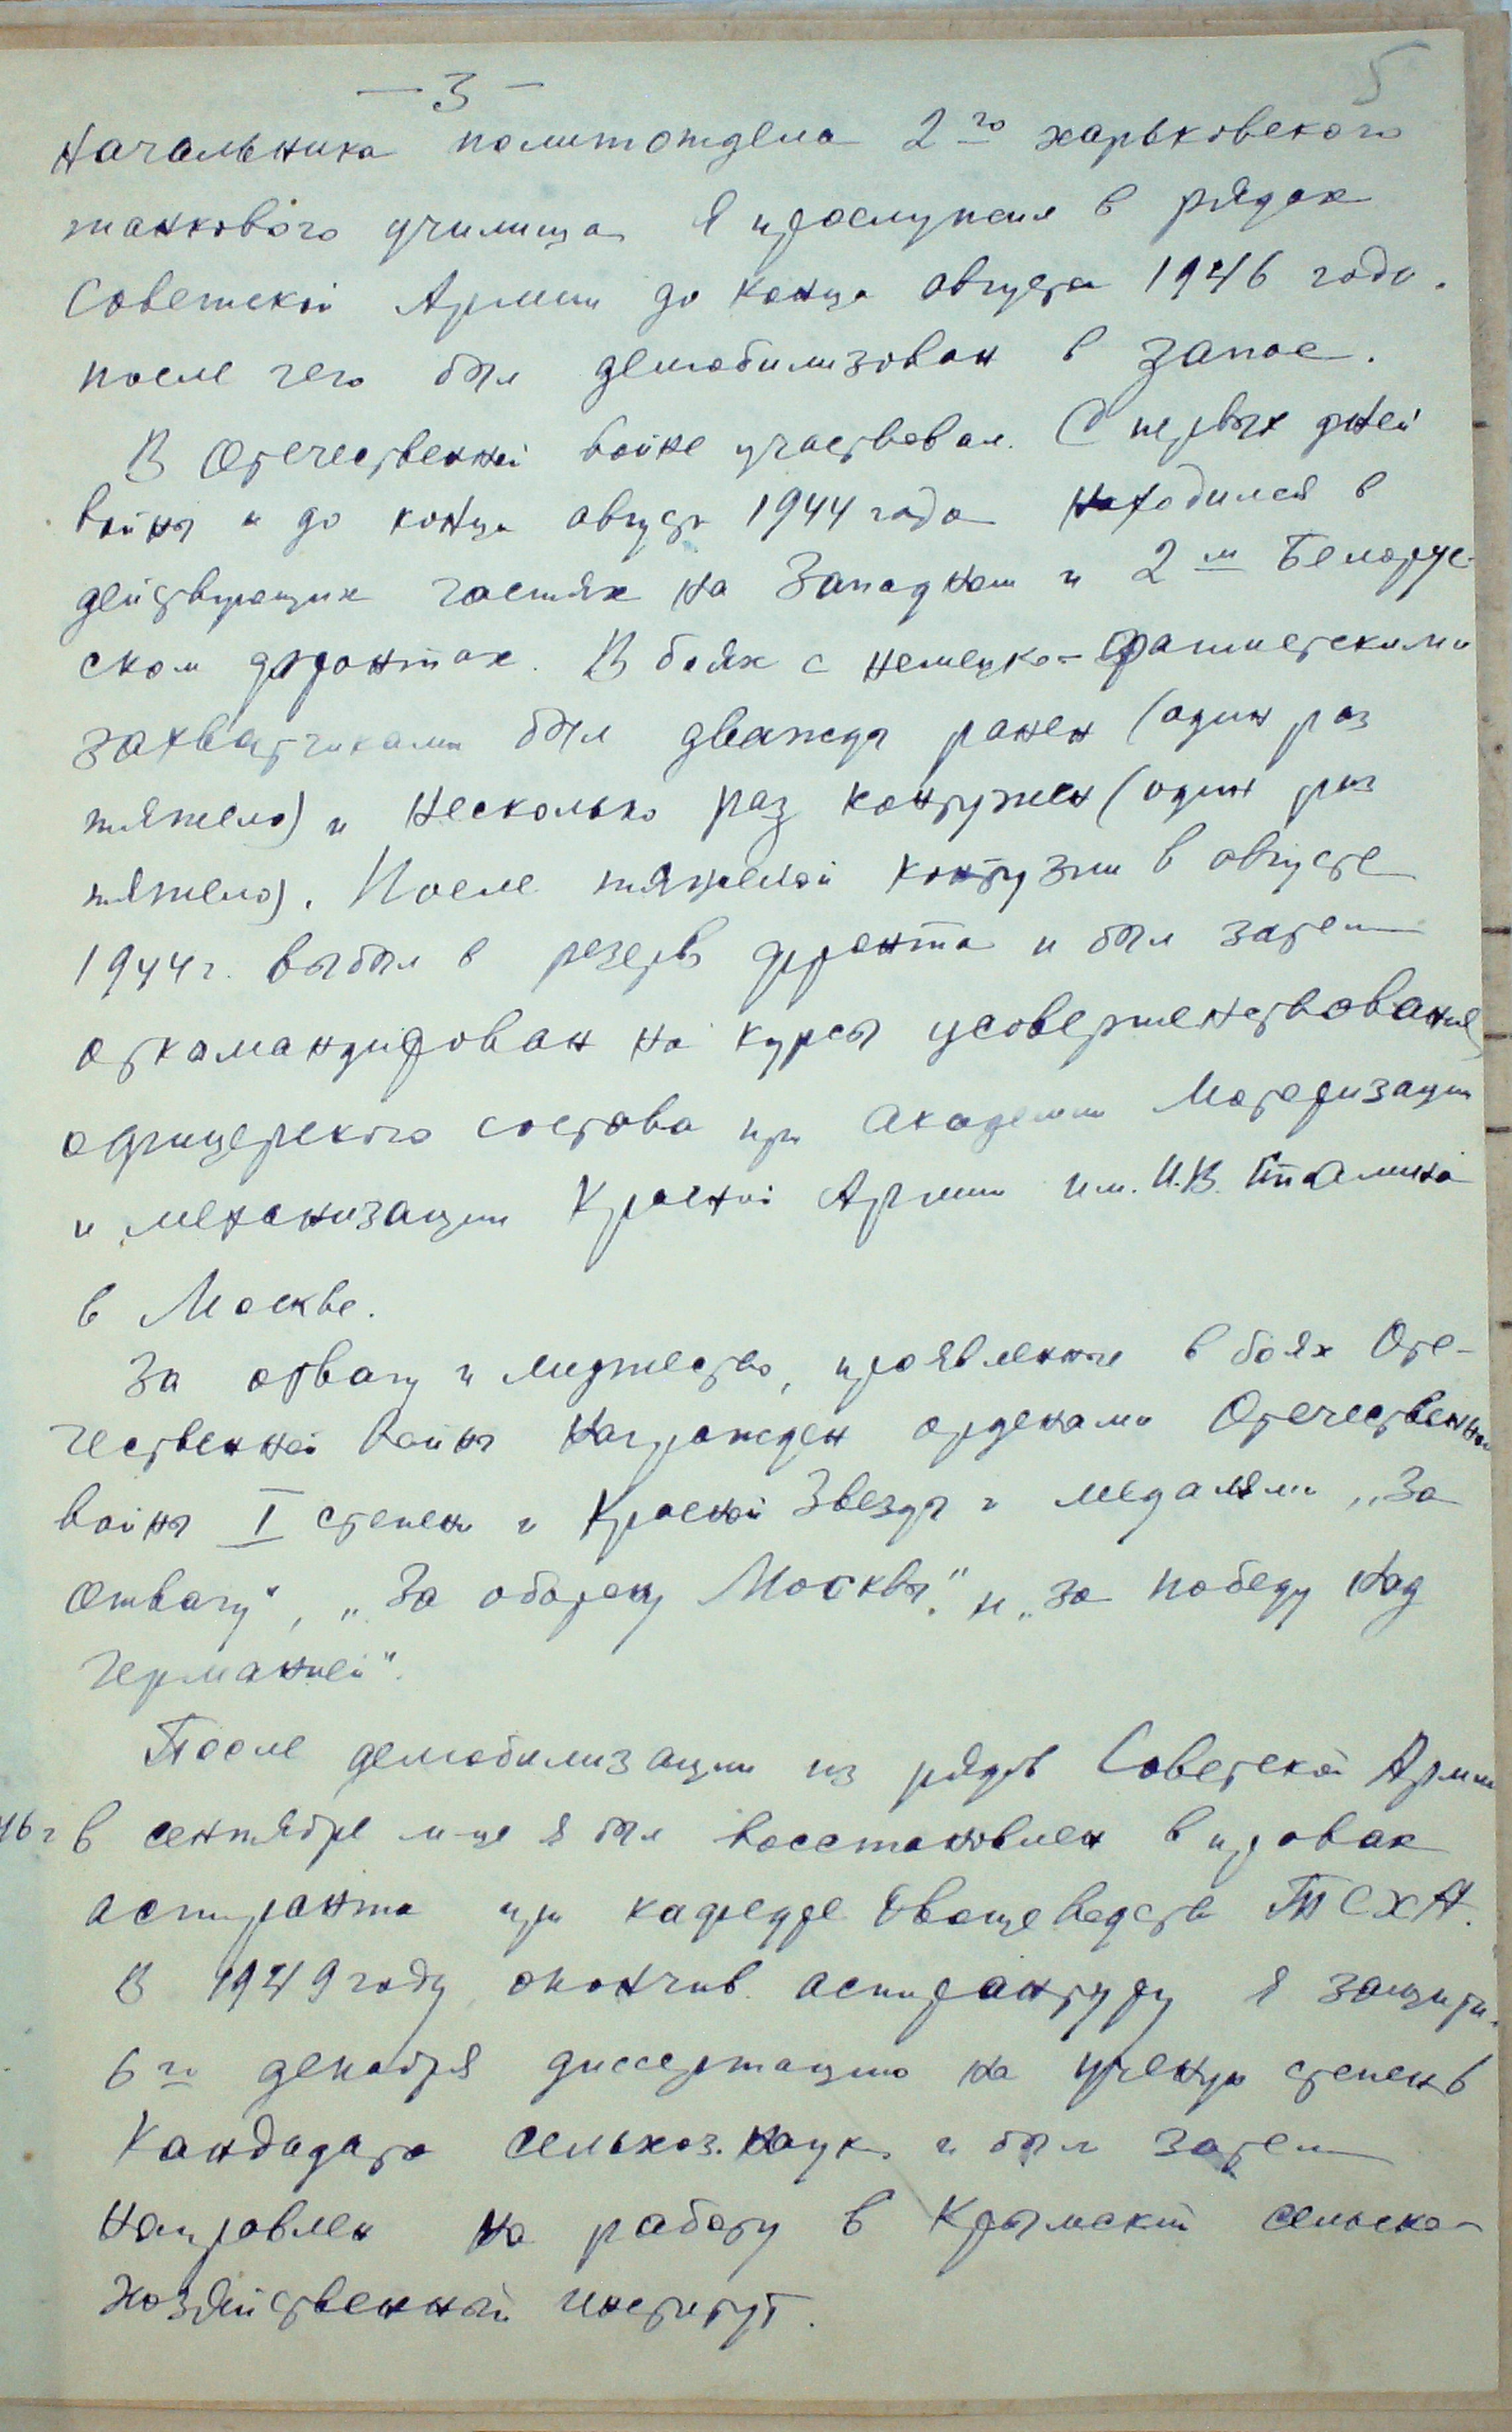 — 3 —
5
Начальника политотдела 2го харьковского
танкового училища я прослужил в рядах
Советской Армии до конца августа 1946 года.
после чего был демобилизован в запас.
В Отечественной войне участвовал. С первых дней
войны и до конца августа 1944 года находился в
действующих частях на Западном и 2м Белорус-
ском фронтах. В боях с немецко-фашистскими
захватчиками был дважды ранен (один раз
тяжело) и несколько раз контужен (один раз
тяжело). После тяжелой контузии в августе
1944 г. выбыл в резерв фронта и был затем
откомандирован на курсы усовершенствования
офицерского состава при академии Моторизации
и механизации Красной Армии им. И.В. Сталина
в Москве.
За отвагу и мужество, проявленные в боях Оте-
чественной войны награжден орденами Отечественной
войны I степени и Красной Звезды и медалями „За
отвагу", „За оборону Москвы" и „За победу над
Германией".
После демобилизации из рядов Советской Армии
46 г в сентябре м-це я был восстановлен в правах
аспиранта при кафедре Овощеводства ТСХА.
В 1949 году окончив аспирантуру я защитил
6го декабря диссертацию на ученую степень
Кандидата сельхоз. наук и был затем
направлен на работу в Крымский сельско-
хозяйственный институт.